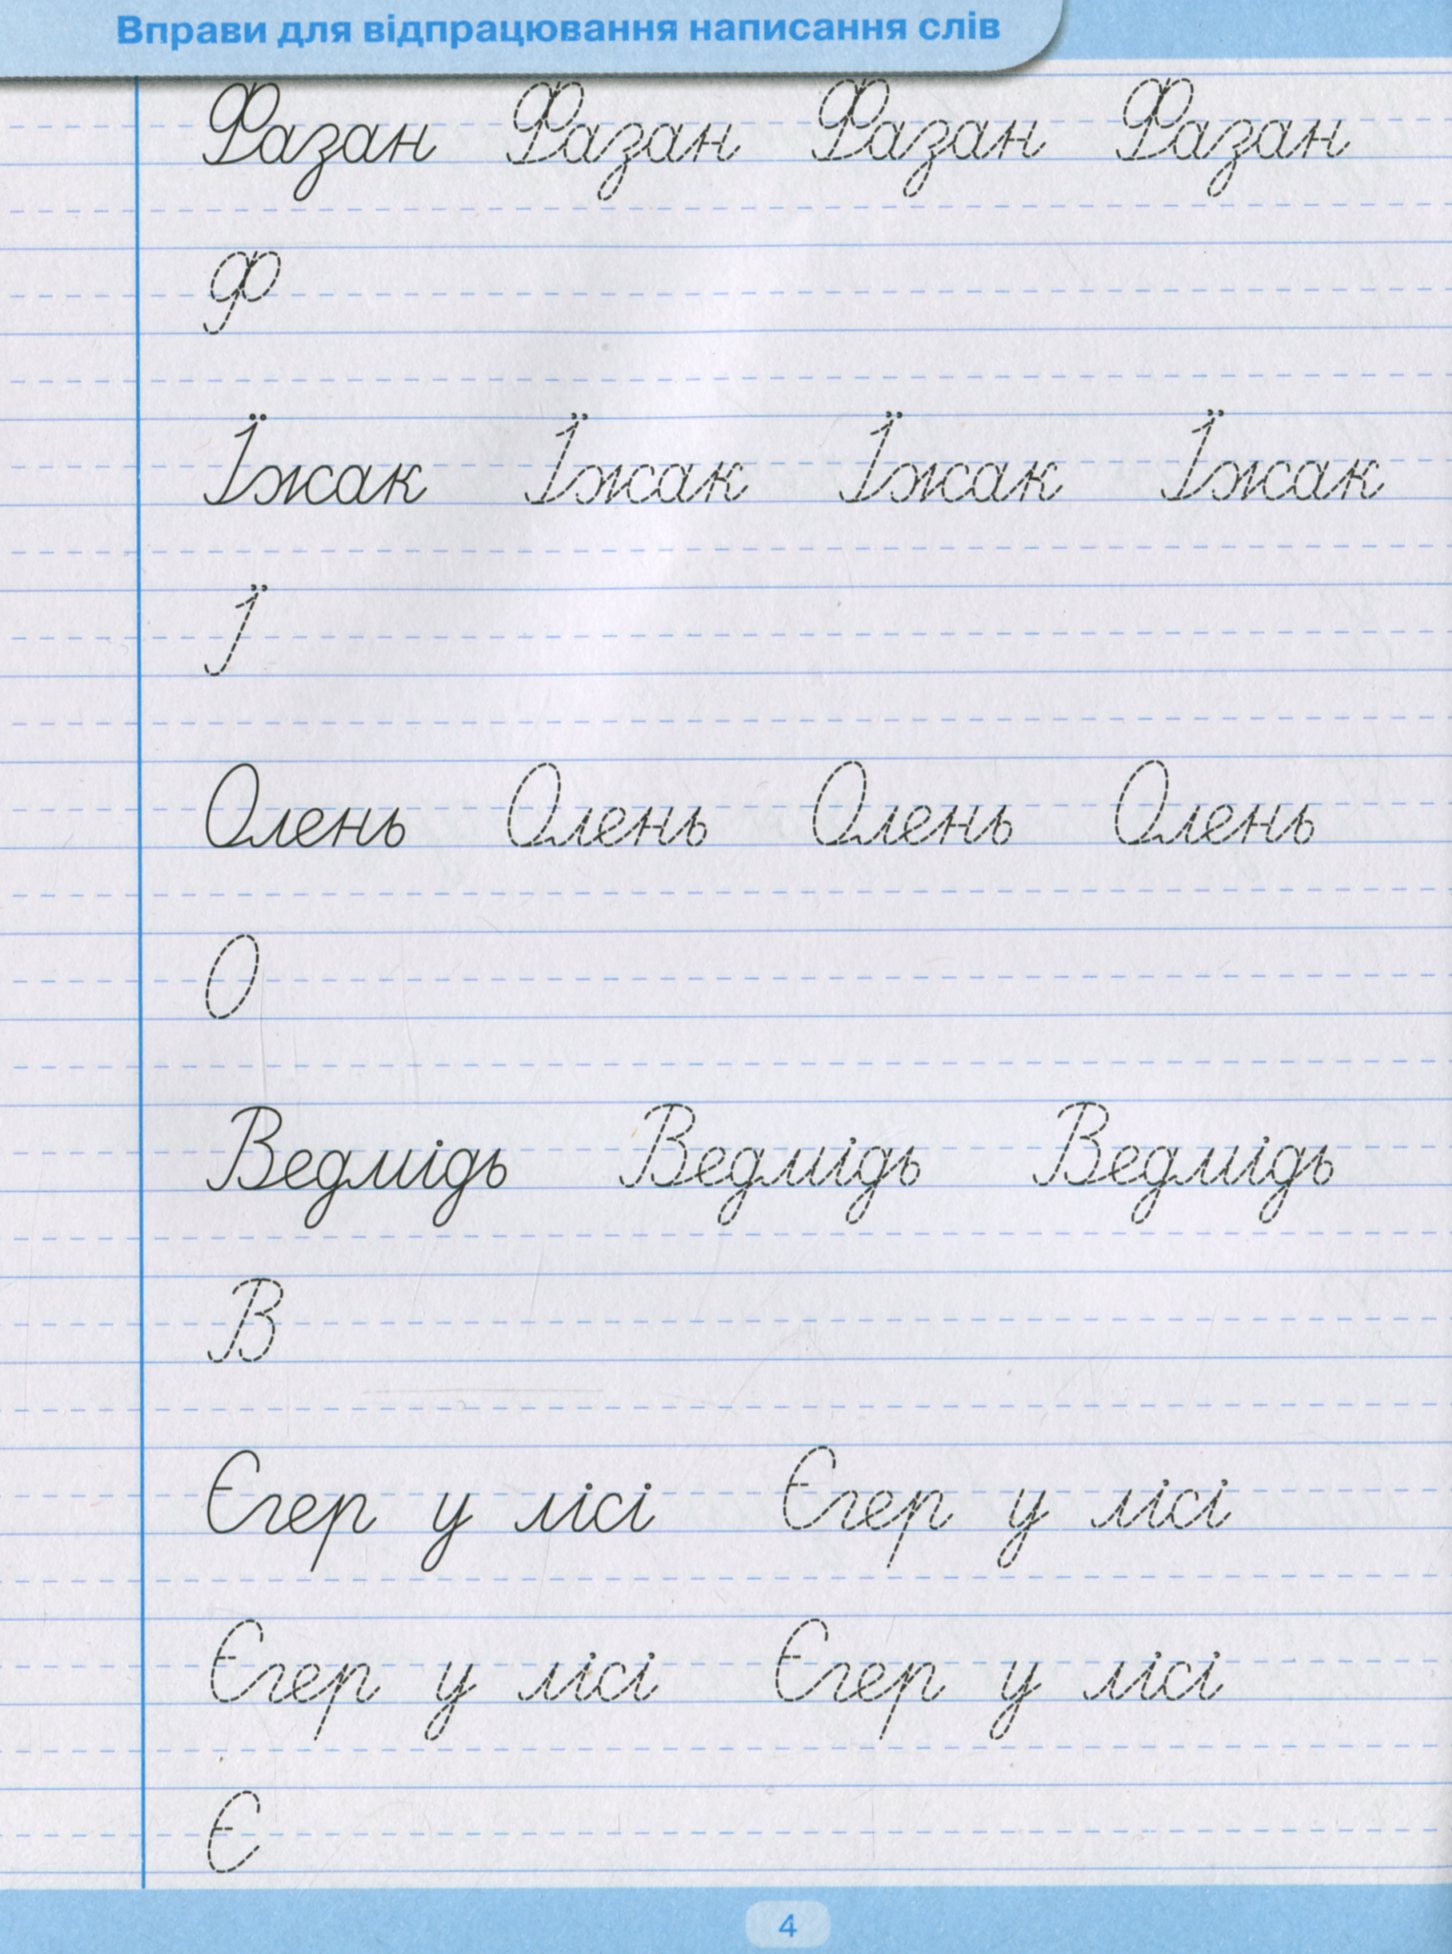 Вправи для відпрацювання написання слів
Фазан Фазан Фазан Фазан
Ф
Їжак Їжак Їжак Їжак
Ї
Олень Олень Олень Олень
О
Ведмідь Ведмідь Ведмідь
В
Єгер у лісі Єгер у лісі
Єгер у лісі Єгер у лісі
Є
4